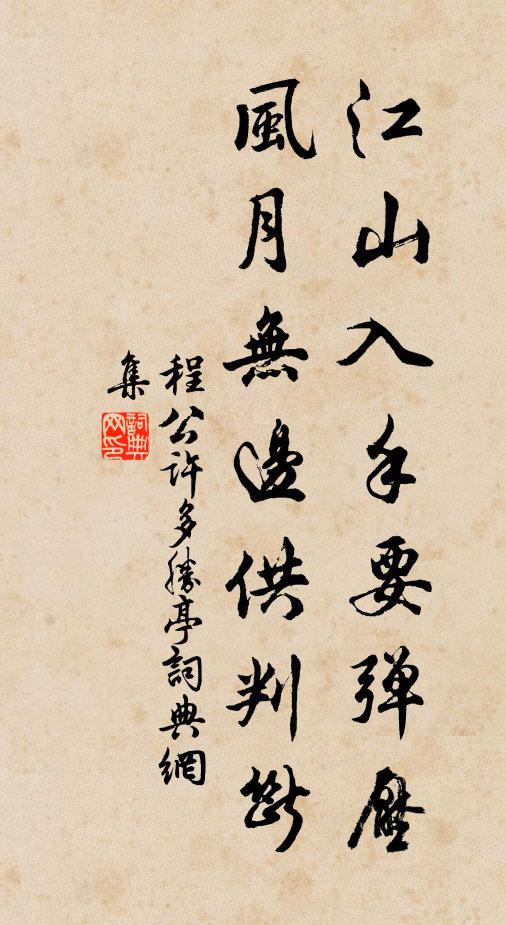 江山入手要弾壓
風月無邊供判斷
程公許多勝亭詞典網
集
詞典
网印